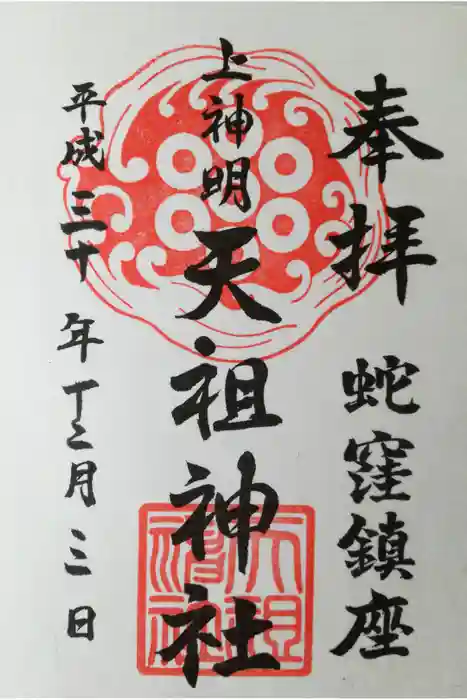 奉拝
蛇窪鎮座
上神明天祖神社
平成三十年十二月三日